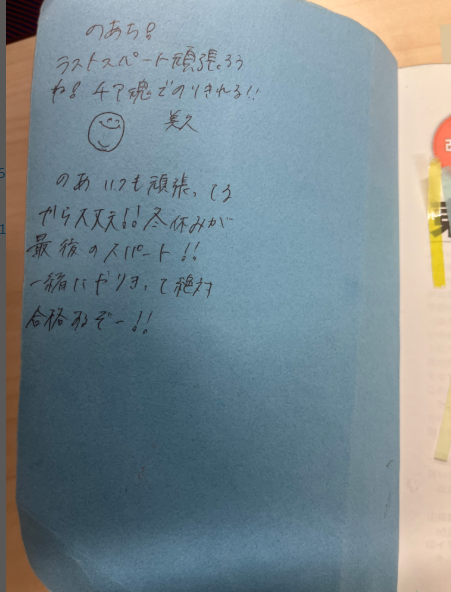 のあち!
ラストスパート頑張ろう
ね! チア魂でのりきれる!!
美久
のあ いつも頑張ってる
から大丈夫!! 冬休みが
最後のスパート!!
一緒にやりきって絶対
合格するぞー!!